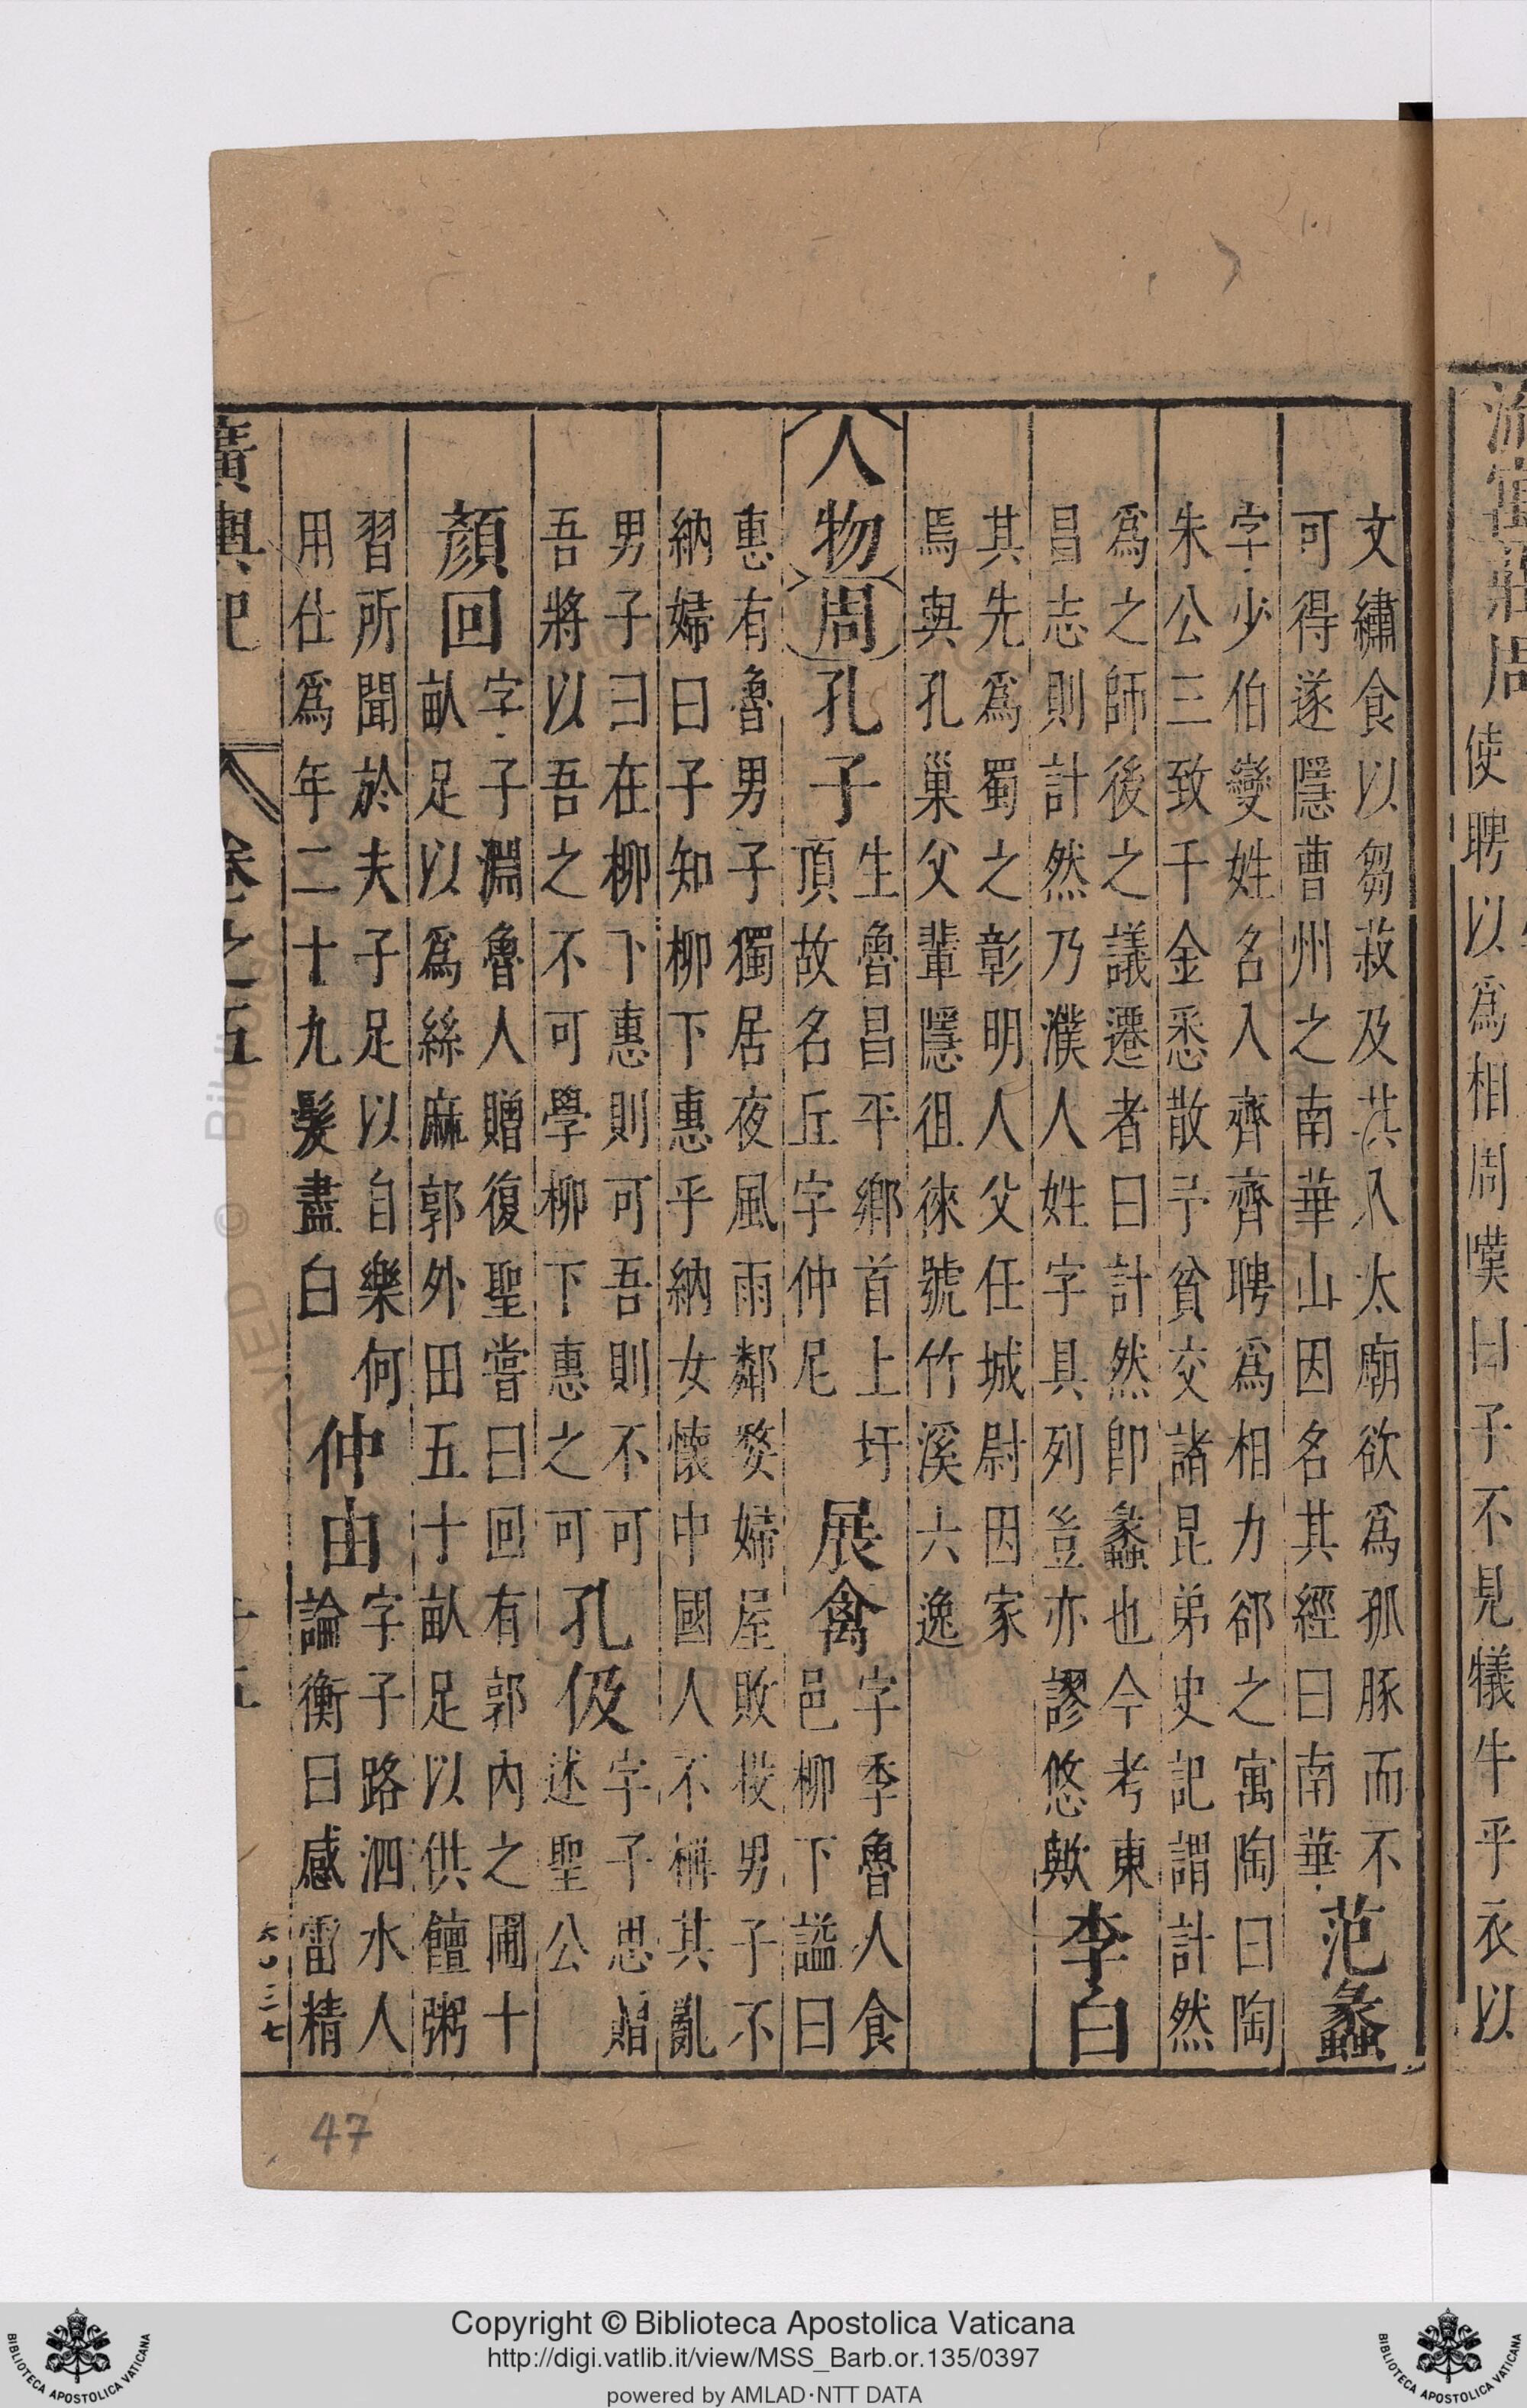 流寓莊周使聘以爲相周嘆曰子不見犧牛乎衣以
文繡食以芻菽及其入太廟欲爲孤豚而不
可得遂隱曹州之南華山因名其經曰南華范蠡
字少伯變姓名入齊齊聘爲相力郤之寓陶曰陶
朱公三致千金悉散予貧交諸昆弟史記謂計然
爲之師後之議遷者曰計然卽蠡也今考東
昌志則計然乃濮人姓字具列豈亦謬悠歟李白
其先爲蜀之彰明人父任城尉因家
焉與孔巢父輩隱徂徠號竹溪六逸
人物周孔子生魯昌平鄉首上圩
頂故名丘字仲尼展禽字季魯人食
邑柳下謚曰
惠有魯男子獨居夜風雨鄰婺婦屋敗投男子不
納婦曰子知柳下惠乎納女懷中國人不稱其亂
男子曰在柳下惠則可吾則不可
吾將以吾之不可學柳下惠之可孔伋字子思贈
述聖公
顏回字子淵魯人贈復聖嘗曰回有郭內之圃十
畝足以爲絲麻郭外田五十畝足以供饘粥
習所聞於夫子足以自樂何
用仕爲年二十九髮盡白仲由字子路泗水人
論衡曰感雷精
廣輿記
卷之五
六〇三七
47
Copyright © Biblioteca Apostolica Vaticana
http://digi.vatlib.it/view/MSS_Barb.or.135/0397
powered by AMLAD·NTT DATA
BIBLIOTECA APOSTOLICA VATICANA
BIBLIOTECA APOSTOLICA VATICANA